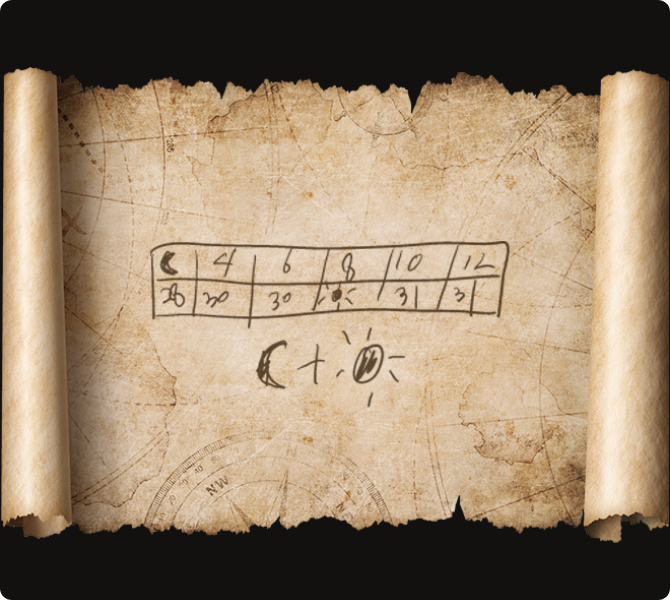 ☾ 4 6 8 10 12
28 30 30 ☀ 31 31
☾ + ☀
NW